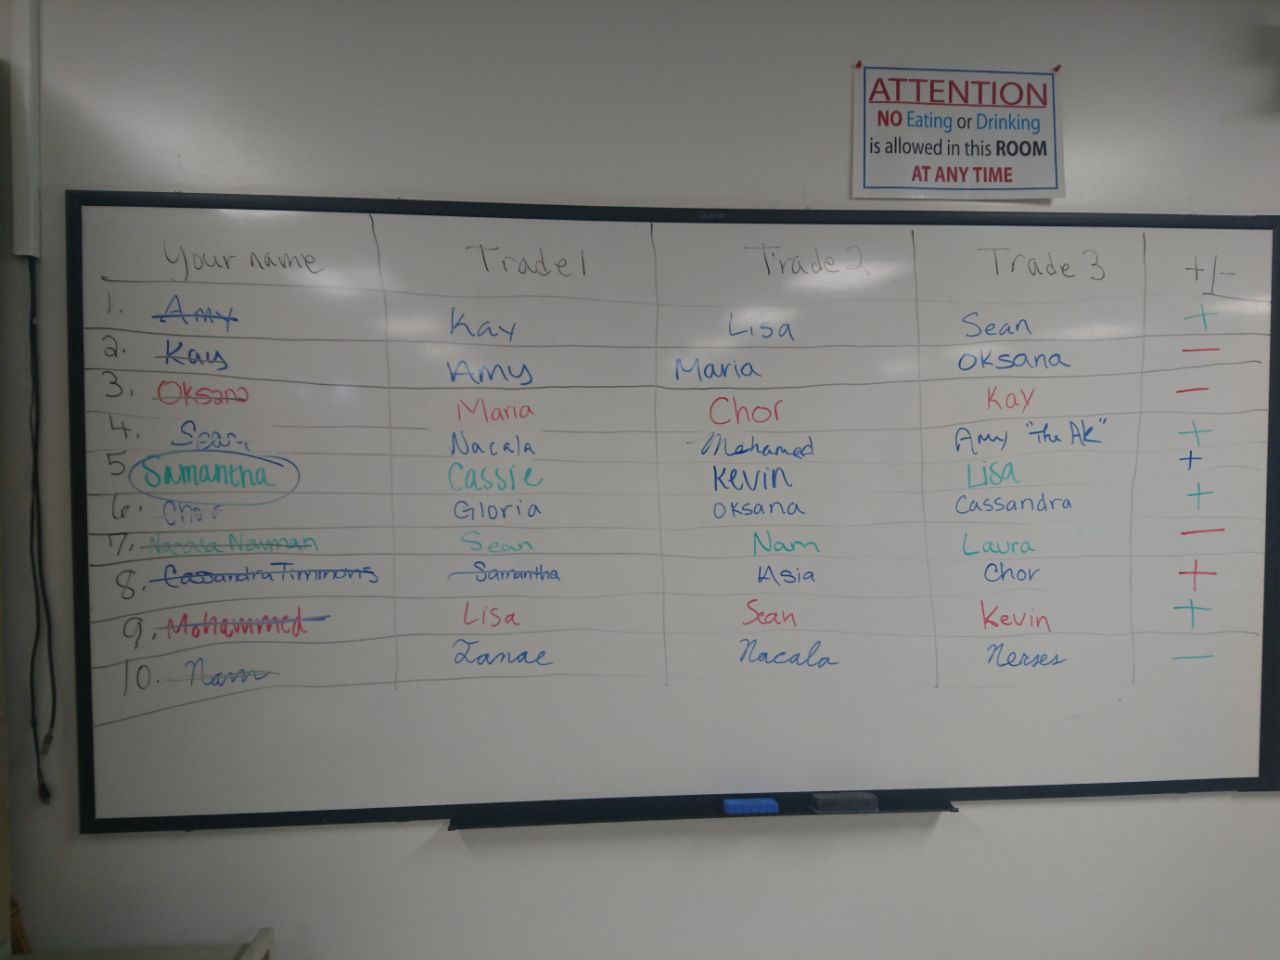 ATTENTION
NO Eating or Drinking
is allowed in this ROOM
AT ANY TIME
Your name Trade 1 Trade 2 Trade 3 +/-
1. Amy Kay Lisa Sean +
2. Kay Amy Maria Oksana -
3. Oksana Maria Chor Kay -
4. Sean Nacala Mohamed Amy "The AK" +
5 Samantha Cassie Kevin Lisa +
6. Chor Gloria Oksana Cassandra +
7. Nacala Nauman Sean Nam Laura -
8. Cassandra Timmons Samantha Asia Chor +
9. Mohammed Lisa Sean Kevin +
10. Nam Janae Nacala Nerses -